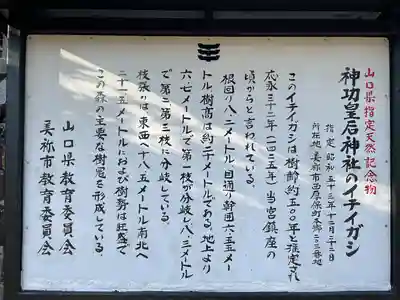 山口県指定天然記念物
神功皇后神社のイチイガシ
指定 昭和五十三年十二月二十二日
所在地 美祢市西厚保町本郷二〇三番地
このイチイガシは樹齢約五〇〇年と推定され
応永三十二年(一四二五年)当宮鎮座の
頃からと言われている。
根回り八.二メートル 目通り幹囲六.五五メー
トル 樹高は約二十メートルである。地上より
六.七メートルで第一枝が分岐し八.三メートル
で第二第三枝に分岐している。
枝張りは東西へ十八.五メートル南北へ
二十一.五メートルにおよび樹勢は旺盛で
この森の主要な樹冠を形成している。
山口県教育委員会
美祢市教育委員会